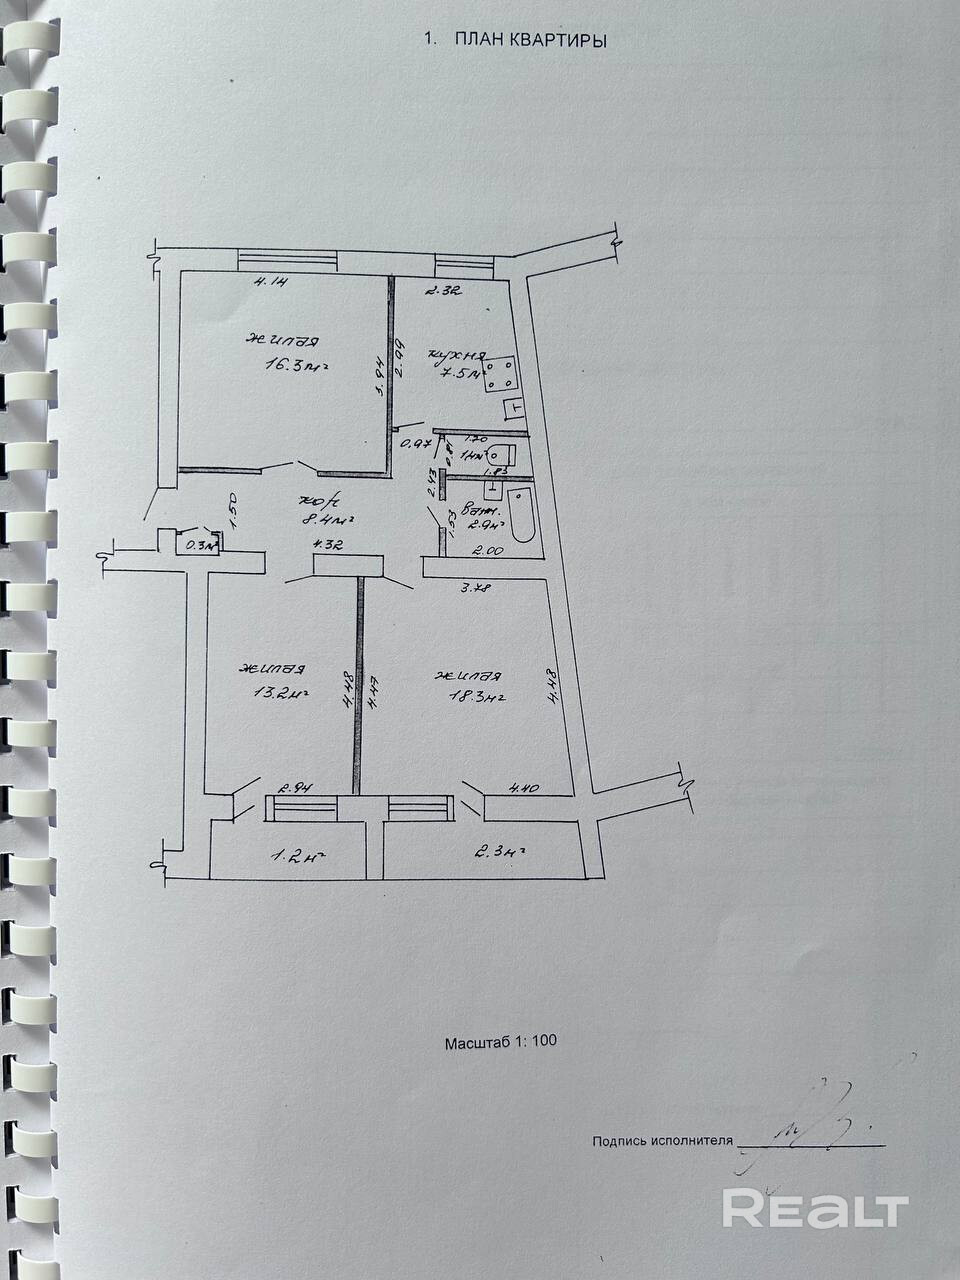 1. ПЛАН КВАРТИРЫ
4.14
2.32
жилая
16.3м²
3.94
2.99
кухня
7.5м²
0.97
1.20
0.81
1.4м²
1.83
2.43
кор
8.4м²
1.50
4.32
0.3м²
ванн.
2.9м²
1.53
2.00
3.78
жилая
13.2м²
4.48
4.47
жилая
18.3м²
4.48
2.94
4.40
1.2м²
2.3м²
Масштаб 1: 100
Подпись исполнителя
REALT